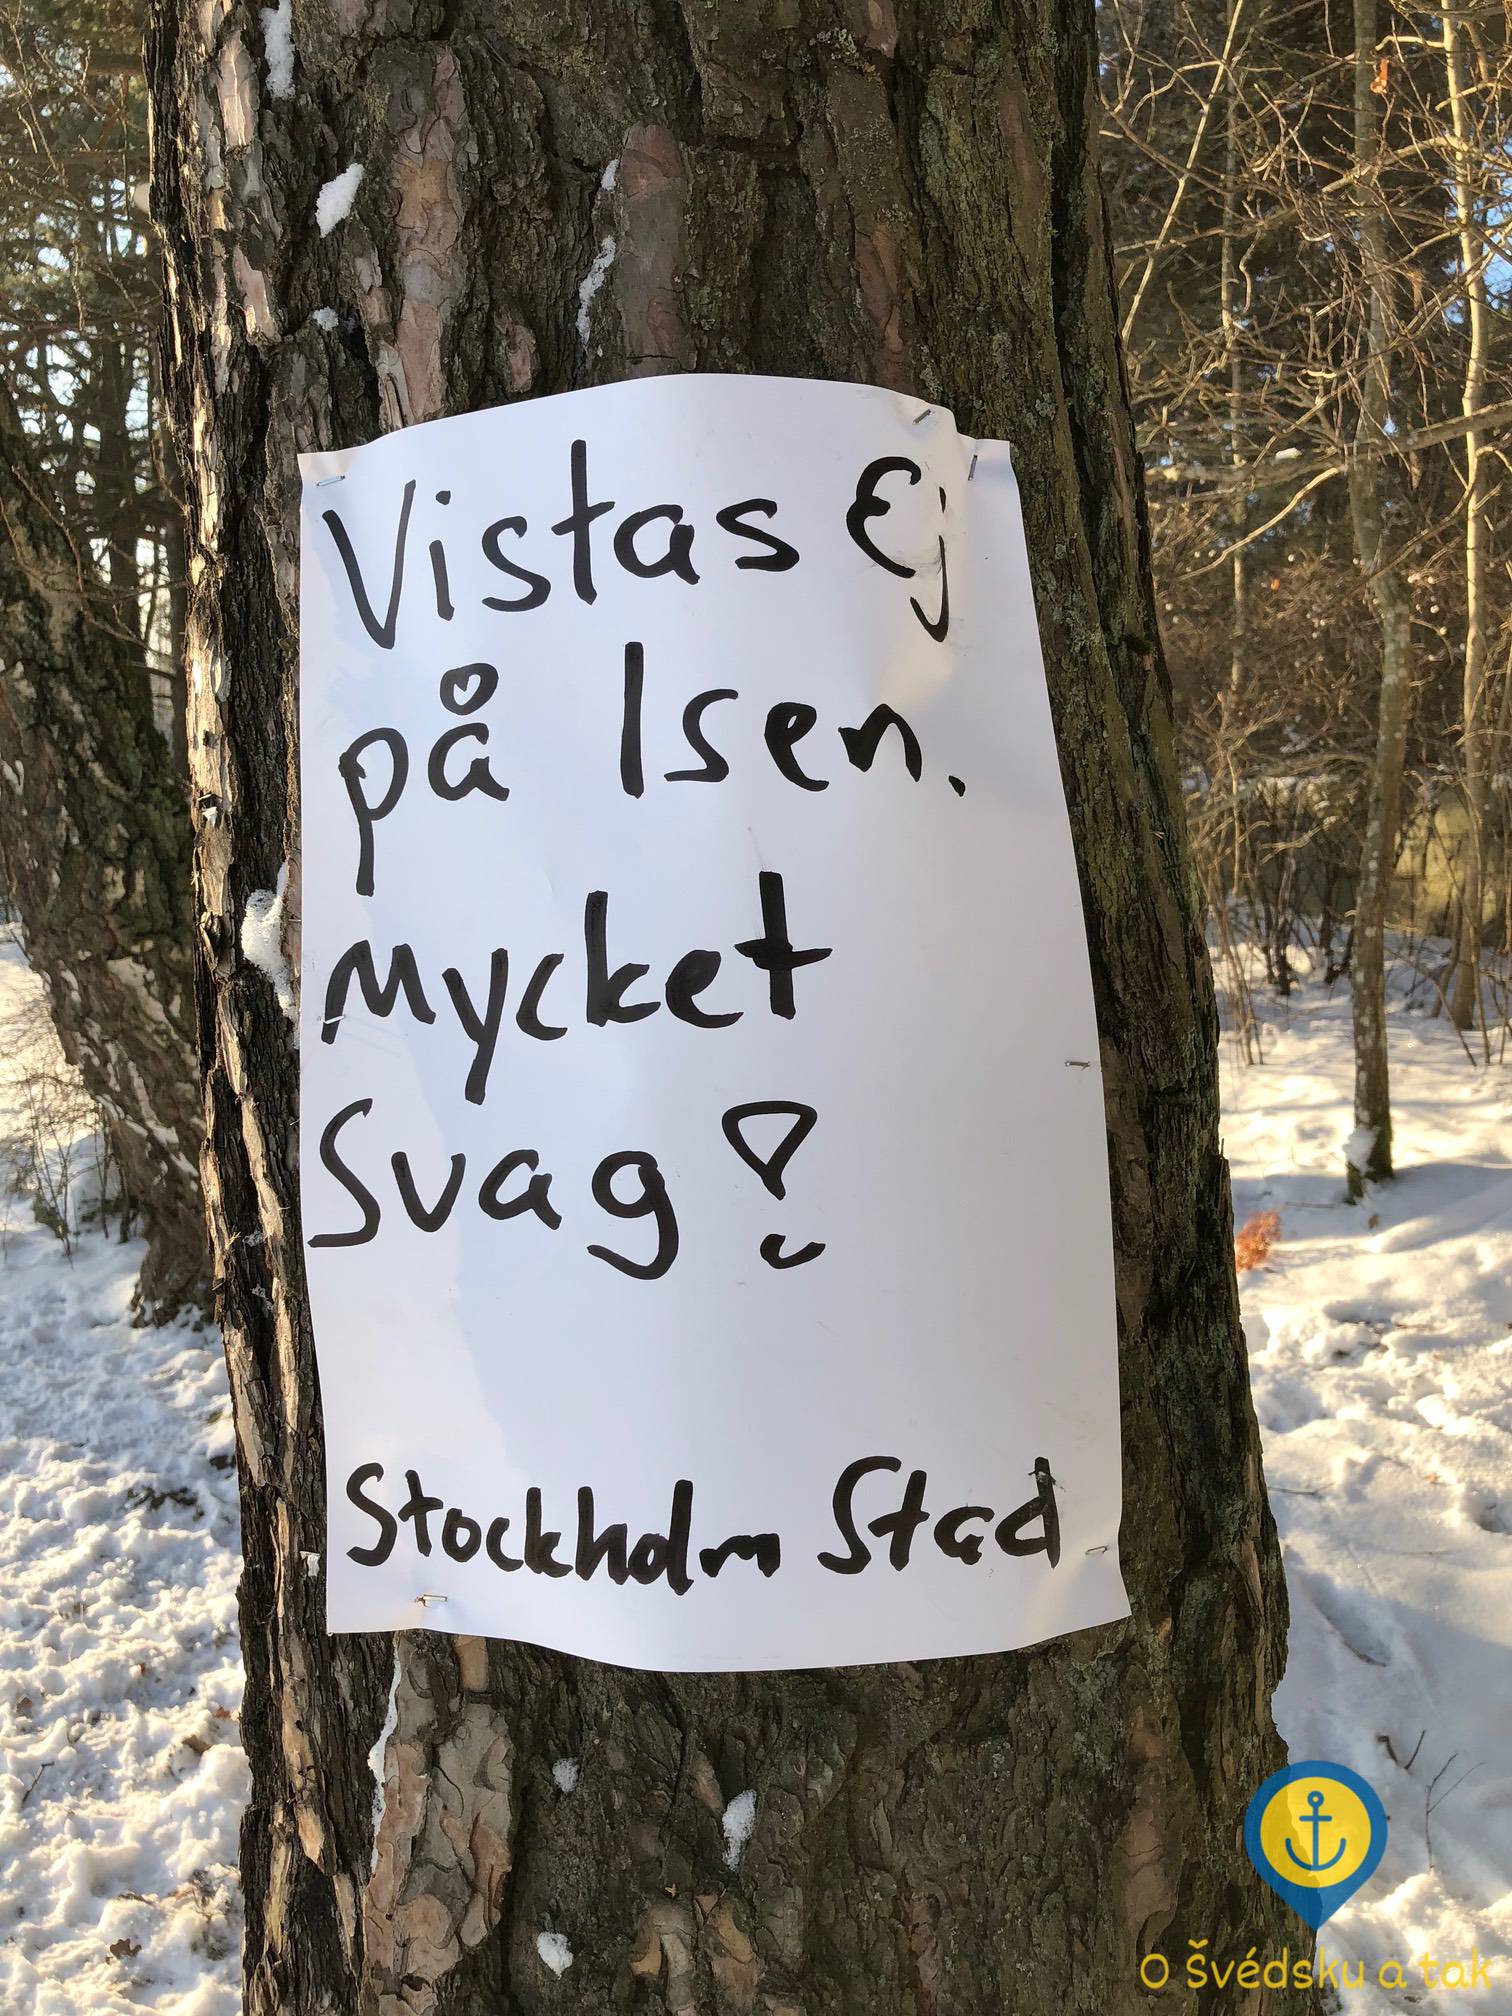 Vistas Ej
på Isen.
Mycket
Svag!
Stockholm Stad
O Švédsku a tak